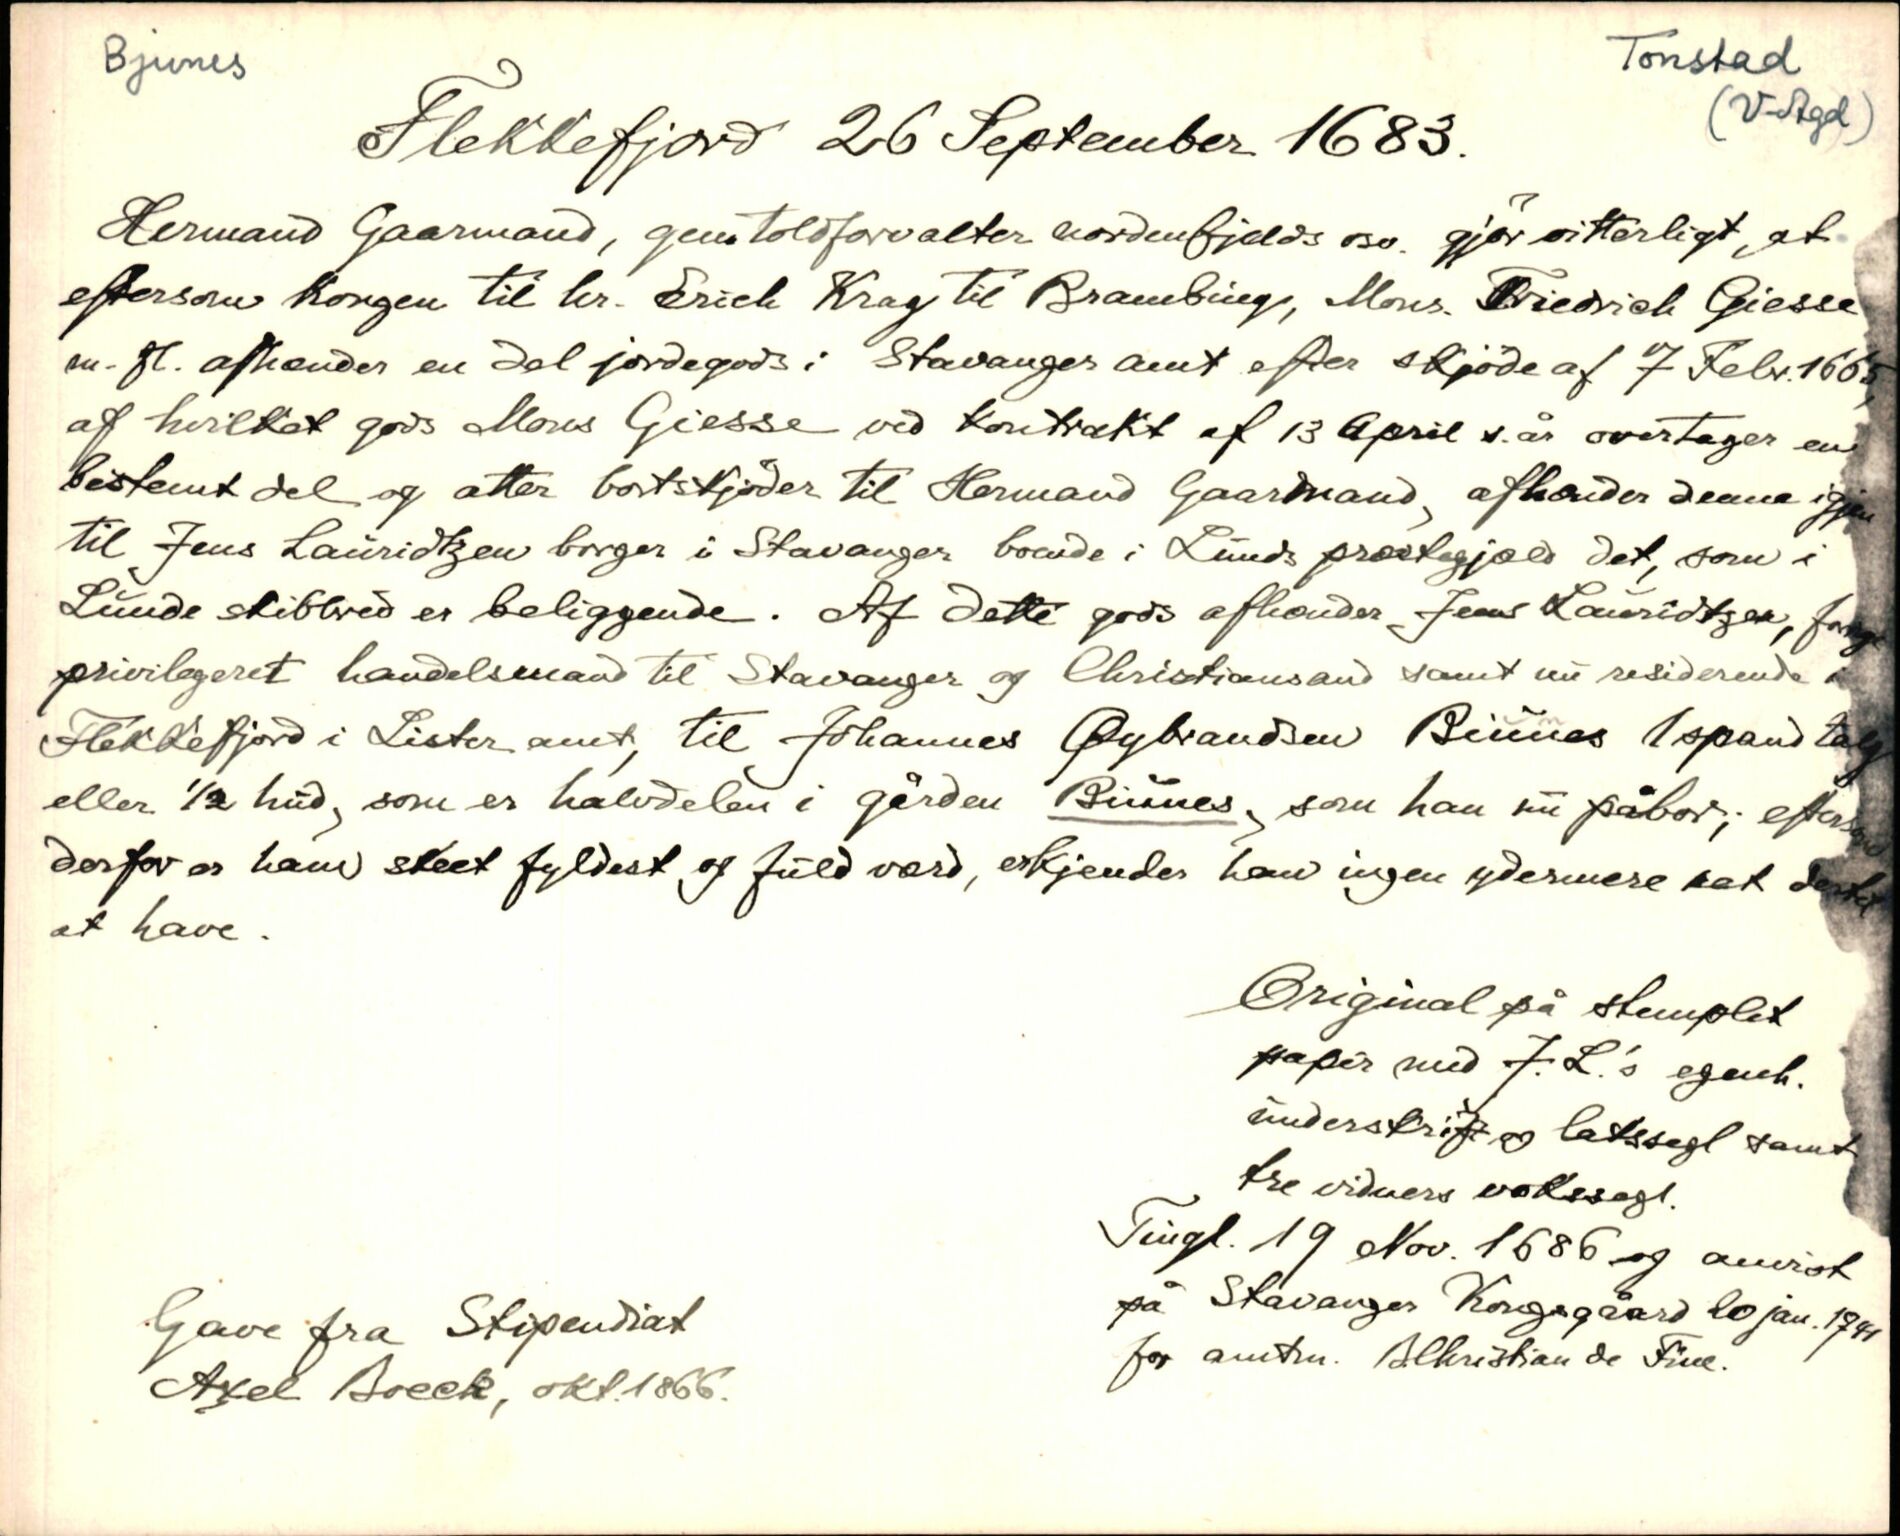 Bjunes
Tonstad
(V-Agd)
Flekkefjord 26 September 1683.
Hermand Gaarmand, gen. toldforvalter nordenfjelds osv. gjør vitterligt, at
eftersom kongen til hr. Erich Krag til Brambing, Mons. Friedrich Giesse
m. fl. afhænder en del jordegods i Stavanger amt efter skjøde af 7 Febr. 1665,
af hvilket gods Mons Giesse ved kontrakt af 13 April s. år overtager en
bestemt del og atter bortskjøder til Hermand Gaarmand, afhænder denne igjen
til Jens Lauridtzen borger i Stavanger boende i Lunds præstegjæld det, som i
Lunde skibbred er beliggende. Af dette gods afhænder Jens Lauridtzen,
privilegeret handelsmand til Stavanger og Christiansand samt nu residerende i
Flekkefjord i Lister amt, til Johannes Øybrandsen Biunes 1 spand talg
eller 1/2 hud, som er halvdelen i gården Biunes, som han nu påbor; eftersom
derfor er ham skeet fyldest og fuld værd, erkjender han ingen ydermere ret dertil
at have.
Original på stemplet
papir med J. L.'s egenh.
underskrift og laksegl samt
tre vidners vokssegl.
Tingl. 19 Nov. 1686 og anvist
på Stavanger Kongsgaard 20 jan. 1741
for amtm. B Christian de Fine.
Gave fra Stipendiat
Axel Boeck, okt. 1866.